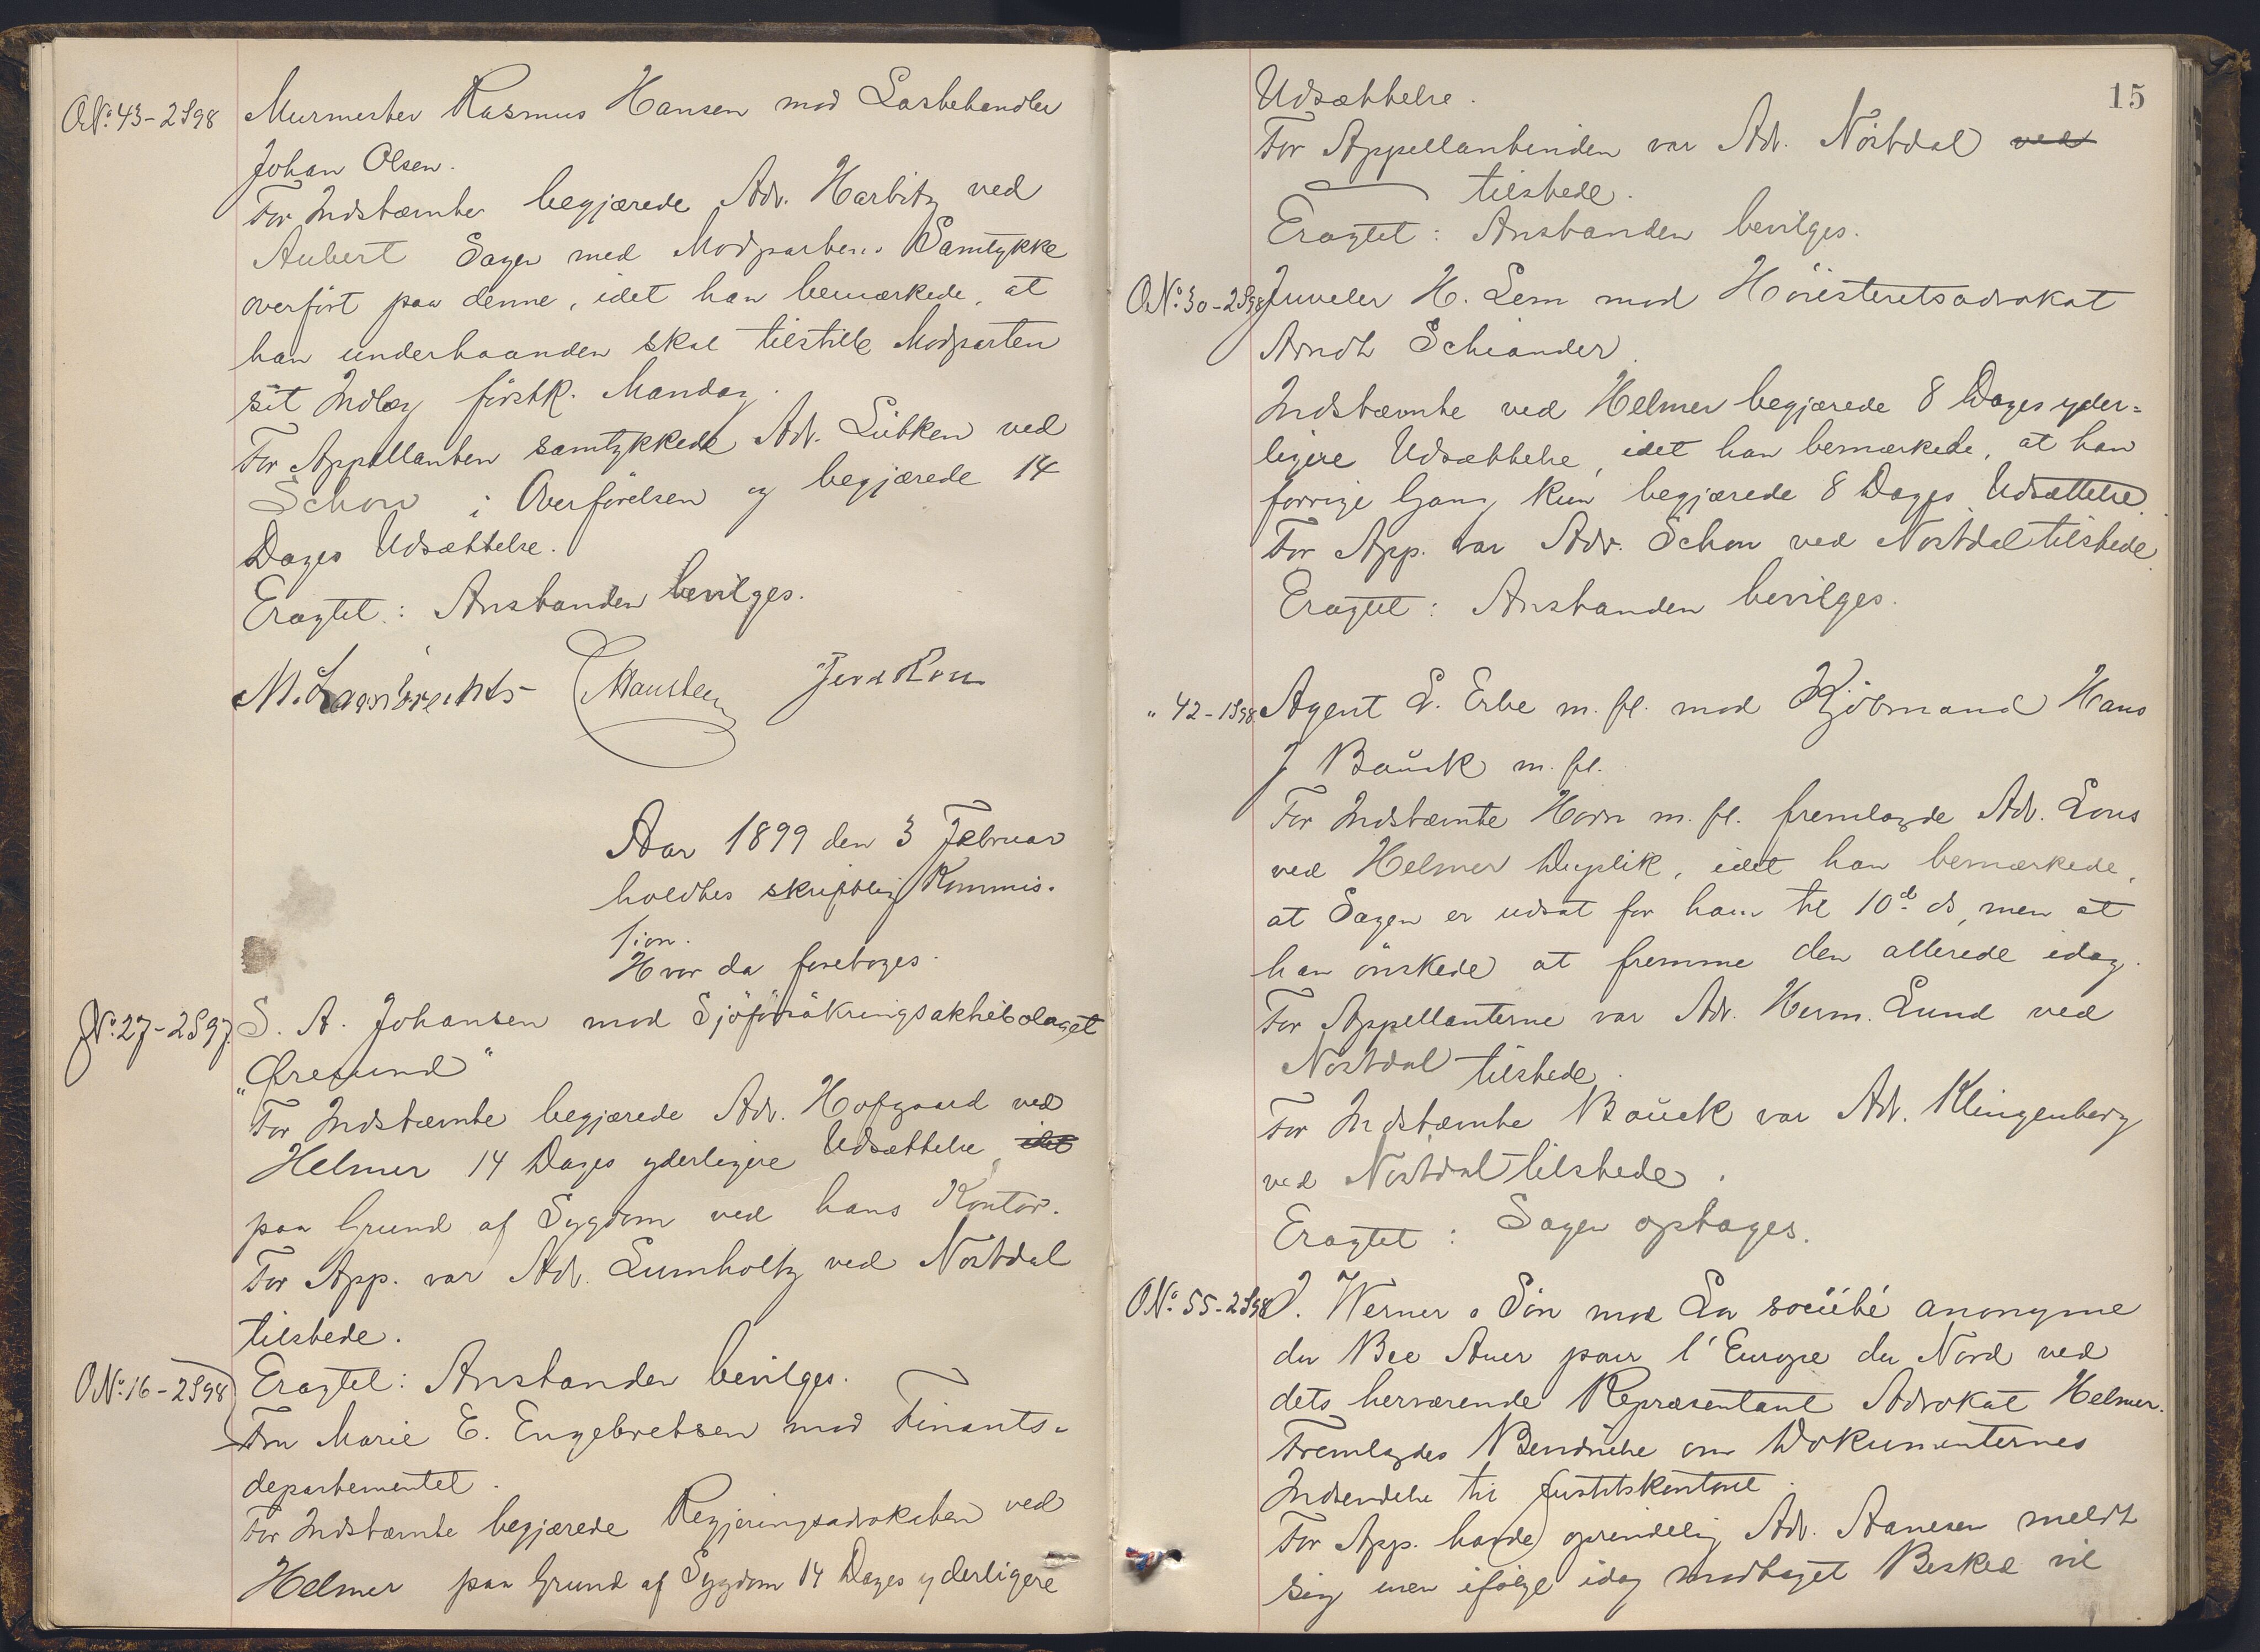 O.No. 43-2S98 Murmester Rasmus Hansen mod Lastehandler
Johan Olsen.
For Indstævnte begjærede Adv. Harbitz ved
Aubert Sagen med Modpartens Samtykke
overført paa denne, idet han bemærkede, at
han underhaanden skal tilstille Modparten
sit Indlæg førstk. Mandag.
For Appellanten samtykkede Adv. Lütken ved
Schou i Overførelsen og begjærede 14
Dages Udsættelse.
Eragtet: Anstanden bevilges.
M. Lambrechts
Aar 1899 den 3 Februar
holdtes skriftlig Kommis-
sion.
Hvor da foretoges.
No. 27-2S97. S. A. Johansen mod Sjöförsäkringsaktiebolaget
"Øresund"
For Indstævnte begjærede Adv. Hofgaard ved
Helmer 14 Dages yderligere Udsættelse, idet
paa Grund af Sygdom ved hans Kontor.
For App. var Adv. Lumholtz ved Nöstdal
tilstede.
Eragtet: Anstanden bevilges.
O No. 16-2S98 Fru Marie E. Engebretsen mod Finants-
departementet.
For Indstævnte begjærede Regjeringsadvokaten ved
Helmer paa Grund af Sygdom 14 Dages yderligere
15
Udsættelse.
For Appellantinden var Adv. Nöstdal ved
tilstede.
Eragtet: Anstanden bevilges.
O No. 30-2S98 Juveler H. Lem mod Höiesteretsadvokat
Arndt Schiander.
Indstævnte ved Helmer begjærede 8 Dages yder=
ligere Udsættelse, idet han bemærkede, at han
forrige Gang kun begjærede 8 Dages Udsættelse.
For App. var Adv. Schou ved Nöstdal tilstede.
Eragtet: Anstanden bevilges.
" 42-1S98 Agent L. Erbe m. fl. mod Kjöbmand Hans
J Bauck m. fl.
For Indstævnte Horn m. fl. fremlagde Adv. Lous
ved Helmer Duplik, idet han bemærkede,
at Sagen er udsat for ham til 10de ds, men at
han önskede at fremme den allerede idag.
For Appellanterne var Adv. Herm. Lund ved
Nöstdal tilstede.
For Indstævnte Bauck var Adv. Klingenberg
ved Nöstdal tilstede.
Eragtet: Sagen optages.
O No. 55-2S98 J. Werner & Sön mod La société anonyme
du Bec Auer pour l'Europe du Nord ved
dets herværende Repræsentant Advokat Helmer.
Fremlagdes Bendicke om Dokumenternes
Indsendelse til Justitskontoret.
For App. havde oprindelig Adv. Aanesen meldt
sig men ifølge idag modtaget Besked vil